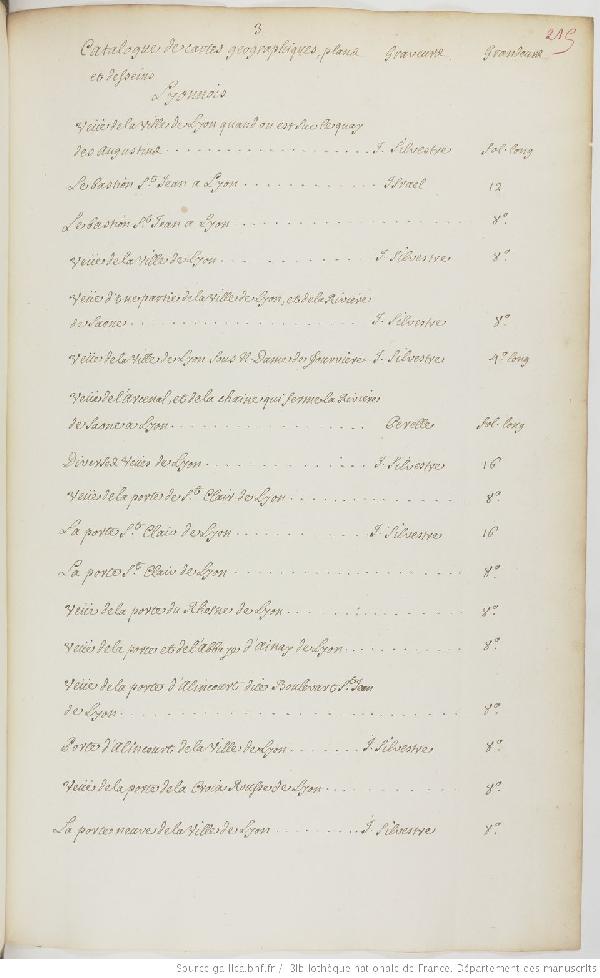 3
215
Catalogue de cartes geographiques, plans Graveurs Grandeurs
et desseins
Lyonnois
Veüe de la Ville de Lyon quand on est sur le quay
des Augustins J. Silvestre fol. long
Le bastion St. Jean a Lyon Israel 12
Le bastion St. Jean a Lyon 8°.
Veüe de la Ville de Lyon J. Silvestre 8°.
Veüe d'une partie de la Ville de Lyon, et de la Riviere
de Saone J. Silvestre 8°.
Veüe de la Ville de Lyon sous N. Dame de Fourviere J. Silvestre 4°. long
Veüe de l'arcenal, et de la chaine qui ferme la Riviere
de Saone a Lyon Perelle fol. long
Diverses Veües de Lyon J. Silvestre 16
Veüe de la porte de St. Clair de Lyon 8°.
La porte St. Clair de Lyon J. Silvestre 16
La porte St. Clair de Lyon 8°.
Veüe de la porte du Rhosne de Lyon 8°.
Veüe de la porte et de l'Abbaye d'Ainay de Lyon 8°.
Veüe de la porte d'Alincourt dite Boulevart St. Jean
de Lyon 8°.
Porte d'Alincourt de la Ville de Lyon J. Silvestre 8°.
Veüe de la porte de la Croix Rousse de Lyon 8°.
La porte neuve de la Ville de Lyon J. Silvestre 8°.
Source gallica.bnf.fr / Bibliothèque nationale de France. Département des manuscrits